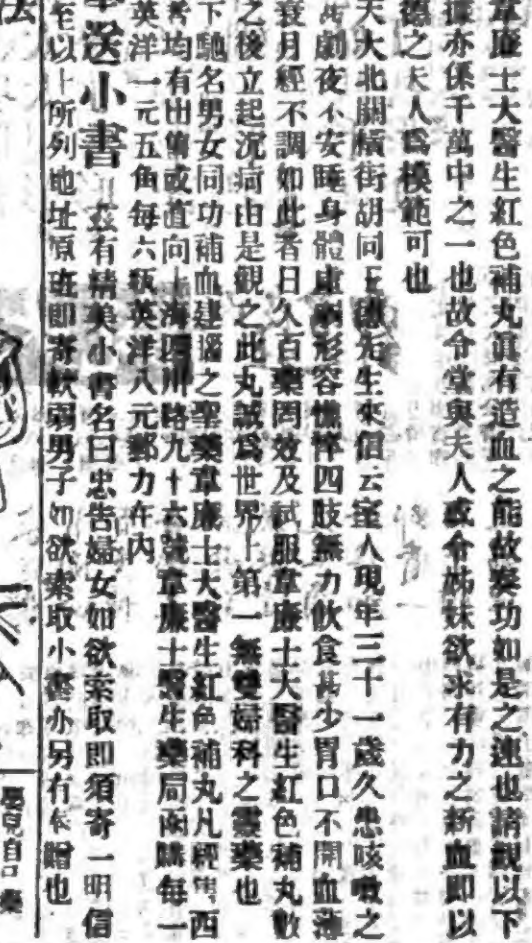 韋廉士大醫生紅色補丸眞有造血之能故奏功如是之速也請觀以下
據亦係千萬中之一也故令堂與夫人或令姊妹欲求有力之新血即以
德之夫人爲模範可也
天大北關橫街胡同王 先生來信云室人現年三十一歲久患咳嗽之
劇夜不安睡身體虛 形容憔悴四肢無力飲食甚少胃口不開血薄
衰月經不調如此者日久百藥罔效及試服韋廉士大醫生紅色補丸數
之後立起沉疴由是觀之此丸誠爲世界上第一無雙婦科之靈藥也
下馳名男女同功補血建腦之聖藥韋廉士大醫生紅色補丸凡經售西
者均有出售或直向上海四川路九十六號韋廉士醫生藥局函購每一
英洋一元五角每六瓶英洋八元郵力在內
送小書 茲有精美小書名曰忠告婦女如欲索取即須寄一明信
至以上所列地址原班即寄軟弱男子如欲索取小書亦另有奉贈也